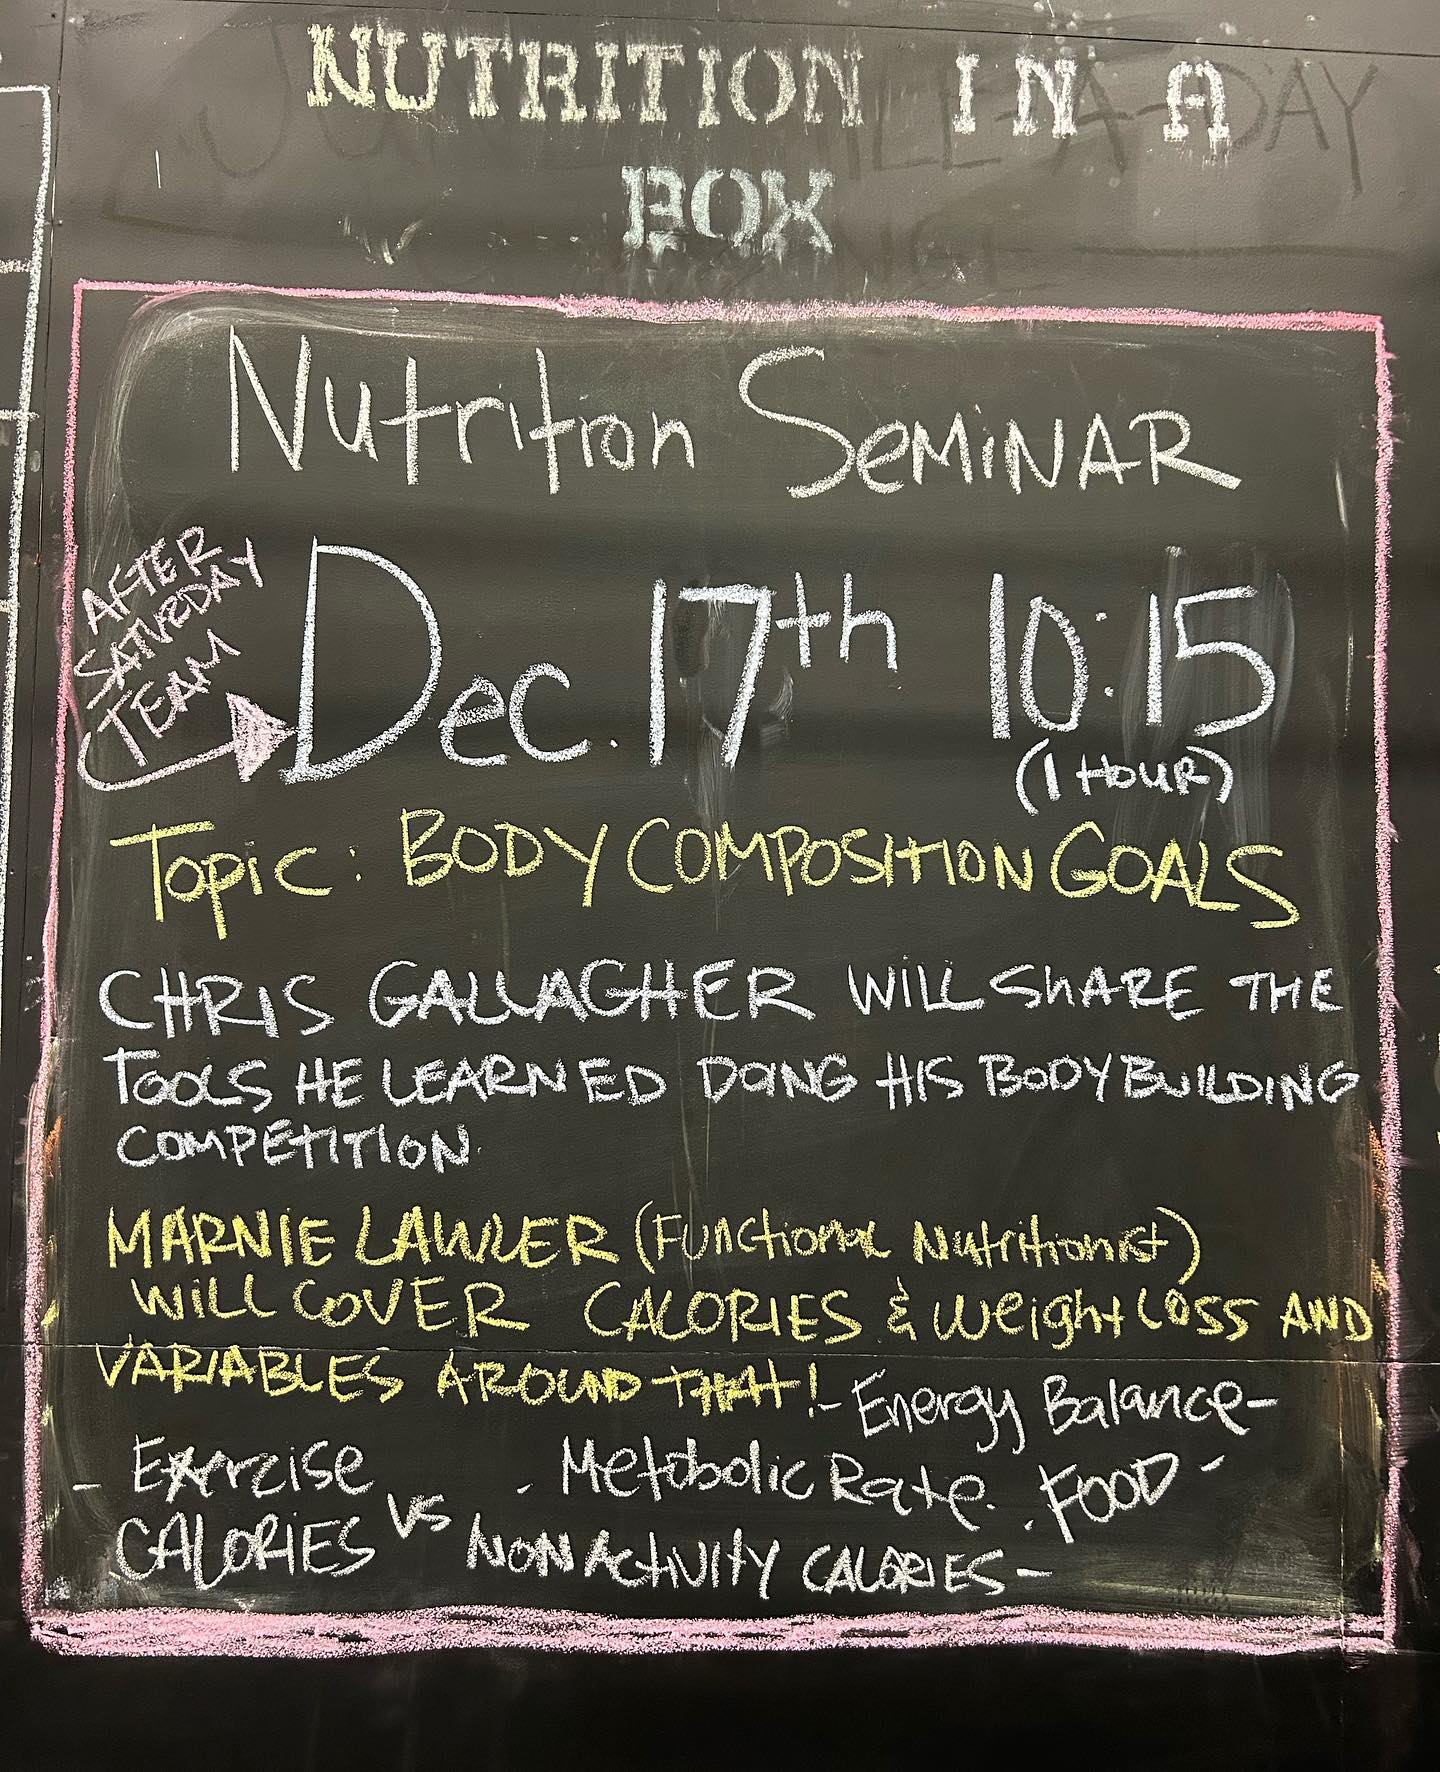 NUTRITION IN A
BOX
Nutrition SEMiNAR
AFTER
SATURDAY
TEAM
Dec. 17th 10:15
(1 HOUR)
Topic: BODY COMPOSITION GOALS
CHRIS GALLAGHER WILL SHARE THE
TOOLS HE LEARNED DOING HIS BODYBUILDING
COMPETITION.
MARNIE LAWLER (Functional Nutritionist)
WILL COVER CALORIES & Weight LOSS AND
VARIABLES AROUND THAT!
- Energy Balance -
- Exercise
CALORIES vs NON ACTIVITY CALORIES -
- Metabolic Rate.
. FOOD -